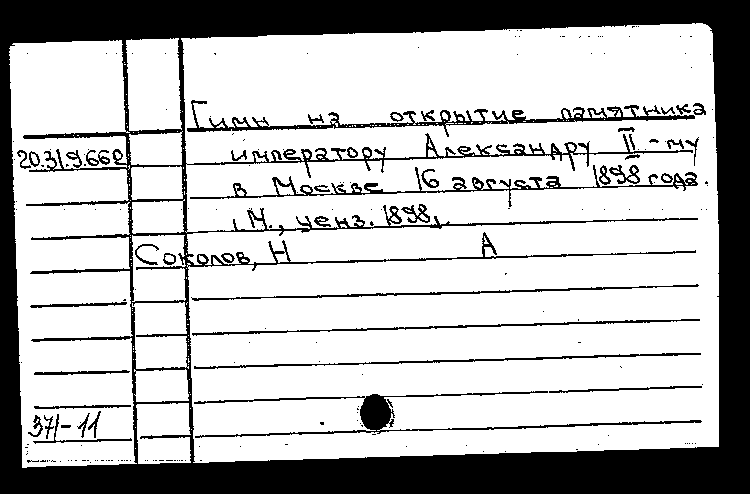 Гимн на открытие памятника
20.31.9.660 императору Александру II-му
в Москве 16 августа 1898 года.
[М., ценз. 1898].
Соколов, Н А
371-11